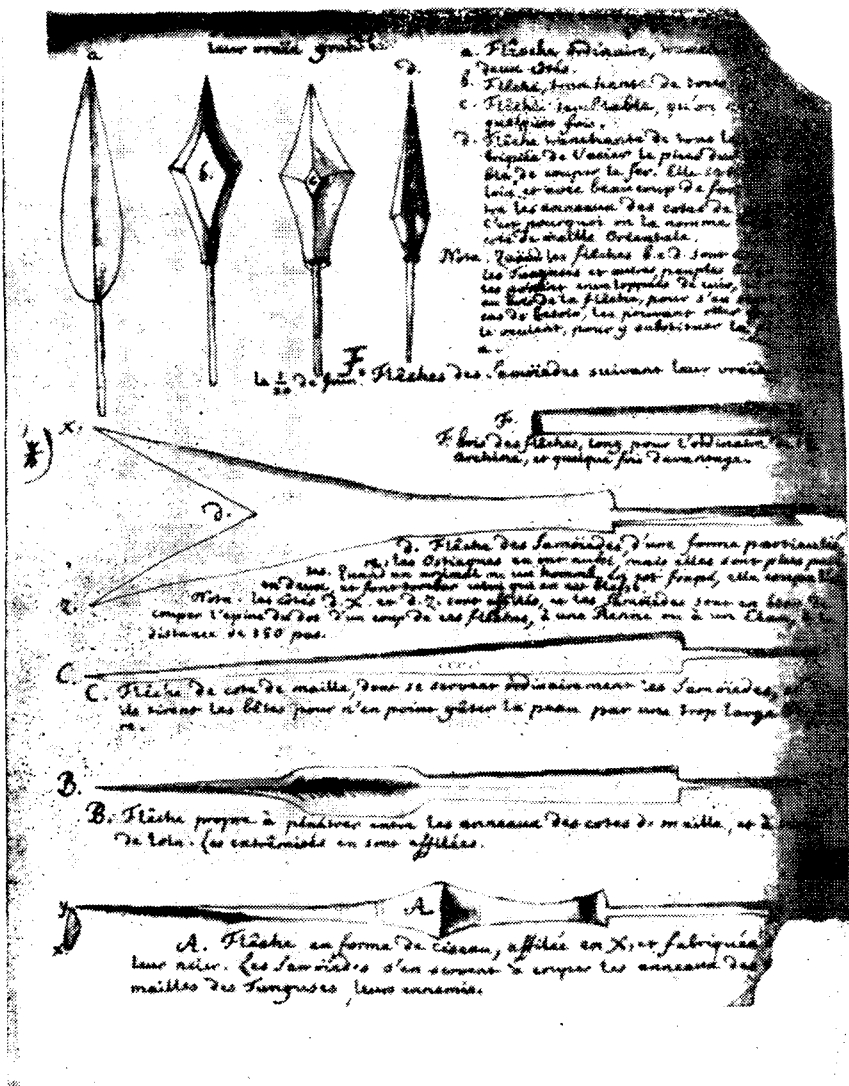 leur vraie grand
a. Flêche ordinaire,
deux côtés.
b. Flêche, tranchante de tous
c. Flêche semblable, qu'on
quelques fois.
d. Flêche tranchante de tous le
de l'acier le plus dur
ble de couper le fer. Elle
loin, et avec beaucoup de for
les anneaux des cotes de
C'est pourquoi on la nomme
cote de maille Orientale.
Nota. Quand les flêches b. c. d. sont
les Tunguses et autres peuples
enveloppées de cuir,
au bois de la flêche, pour s'en
cas de besoin, les pouvant ôter
le voulant, pour y substituer la
a.
F.
la 1/20 de Juin. Flêches des Samoïedes suivant leur vraie
a
b.
c
d.
*) x.
F.
F. bois des flêches, long pour l'ordinaire
Archine, et quelque fois davantage.
d.
d. Flêche des Samoïedes, d'une forme particuliè
re. les Ostiaques en ont aussi, mais elles sont plus
tes. Quand un animal ou un homme en est frapé, elle coupe
en deux, et font tomber celui qui en est blessé.
z.
Nota. les côtés d. X. et d. z. sont affilés, et les Samoïedes sont en état de
couper l'epine du dos d'un coup de ces flêches, à une Renne ou à un Elan, à
distance de 150 pas.
C.
C. Flêche de cote de maille, dont se servent ordinairement les Samoïedes,
ils tirent les bêtes pour n'en point gâter la peau par une trop large
re.
B.
B. Flêche propre à pénétrer entre les anneaux des cotes de maille, et
de loin. Les extrêmités en sont affilées.
y
x
A
A. Flêche en forme de ciseau, affilée en X, et fabriquée
leur Les Samoïedes s'en servent à couper les anneaux des
mailles des Tunguses, leurs ennemis.